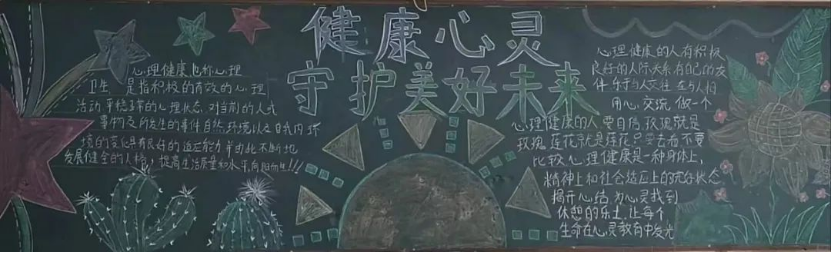 健康心灵
守护美好未来
心理健康也称心理
卫生 是指积极的有效的心理
活动 平稳正常的心理状态,对当前的人或
事物及所发生的事件自然环境以及自我内环
境的变化具有良好的适应能力并由此不断地
发展健全的人格,提高生活质量和水平向阳而生!!!
心理健康的人有积极
良好的人际关系有自己的友
件 乐于与人交往 在与人相
用心交流 做一个
心理健康的人要自信,玫瑰就是
玫瑰 莲花就是莲花只要去看不要
比较 心理健康是一种身体上,
精神上和社会适应上的完好状态
揭开心结 为心灵找到
休憩的乐土,让每个
生命在心灵教育中发光